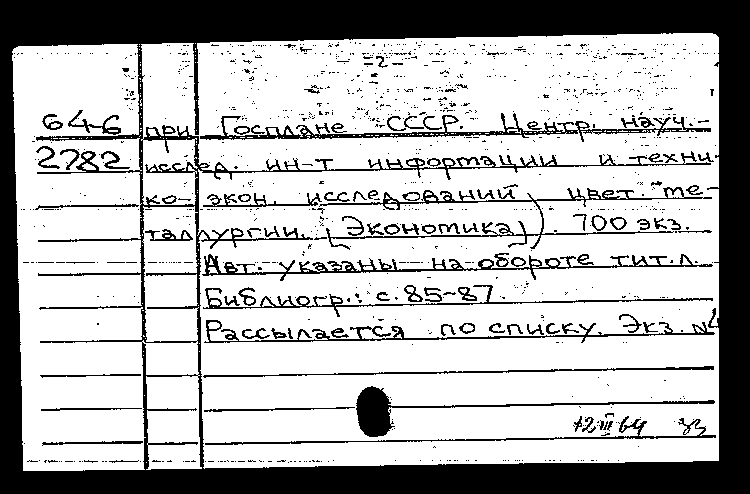 -2-
64-6 при Госплане СССР. Центр. науч.-
2782 исслед. ин-т информации и техни-
ко-экон. исследований цвет. ме-
таллургии. [Экономика]). 700 экз.
Авт. указаны на обороте тит. л.
Библиогр.: с. 85-87.
Рассылается по списку. Экз. №
12 III 64